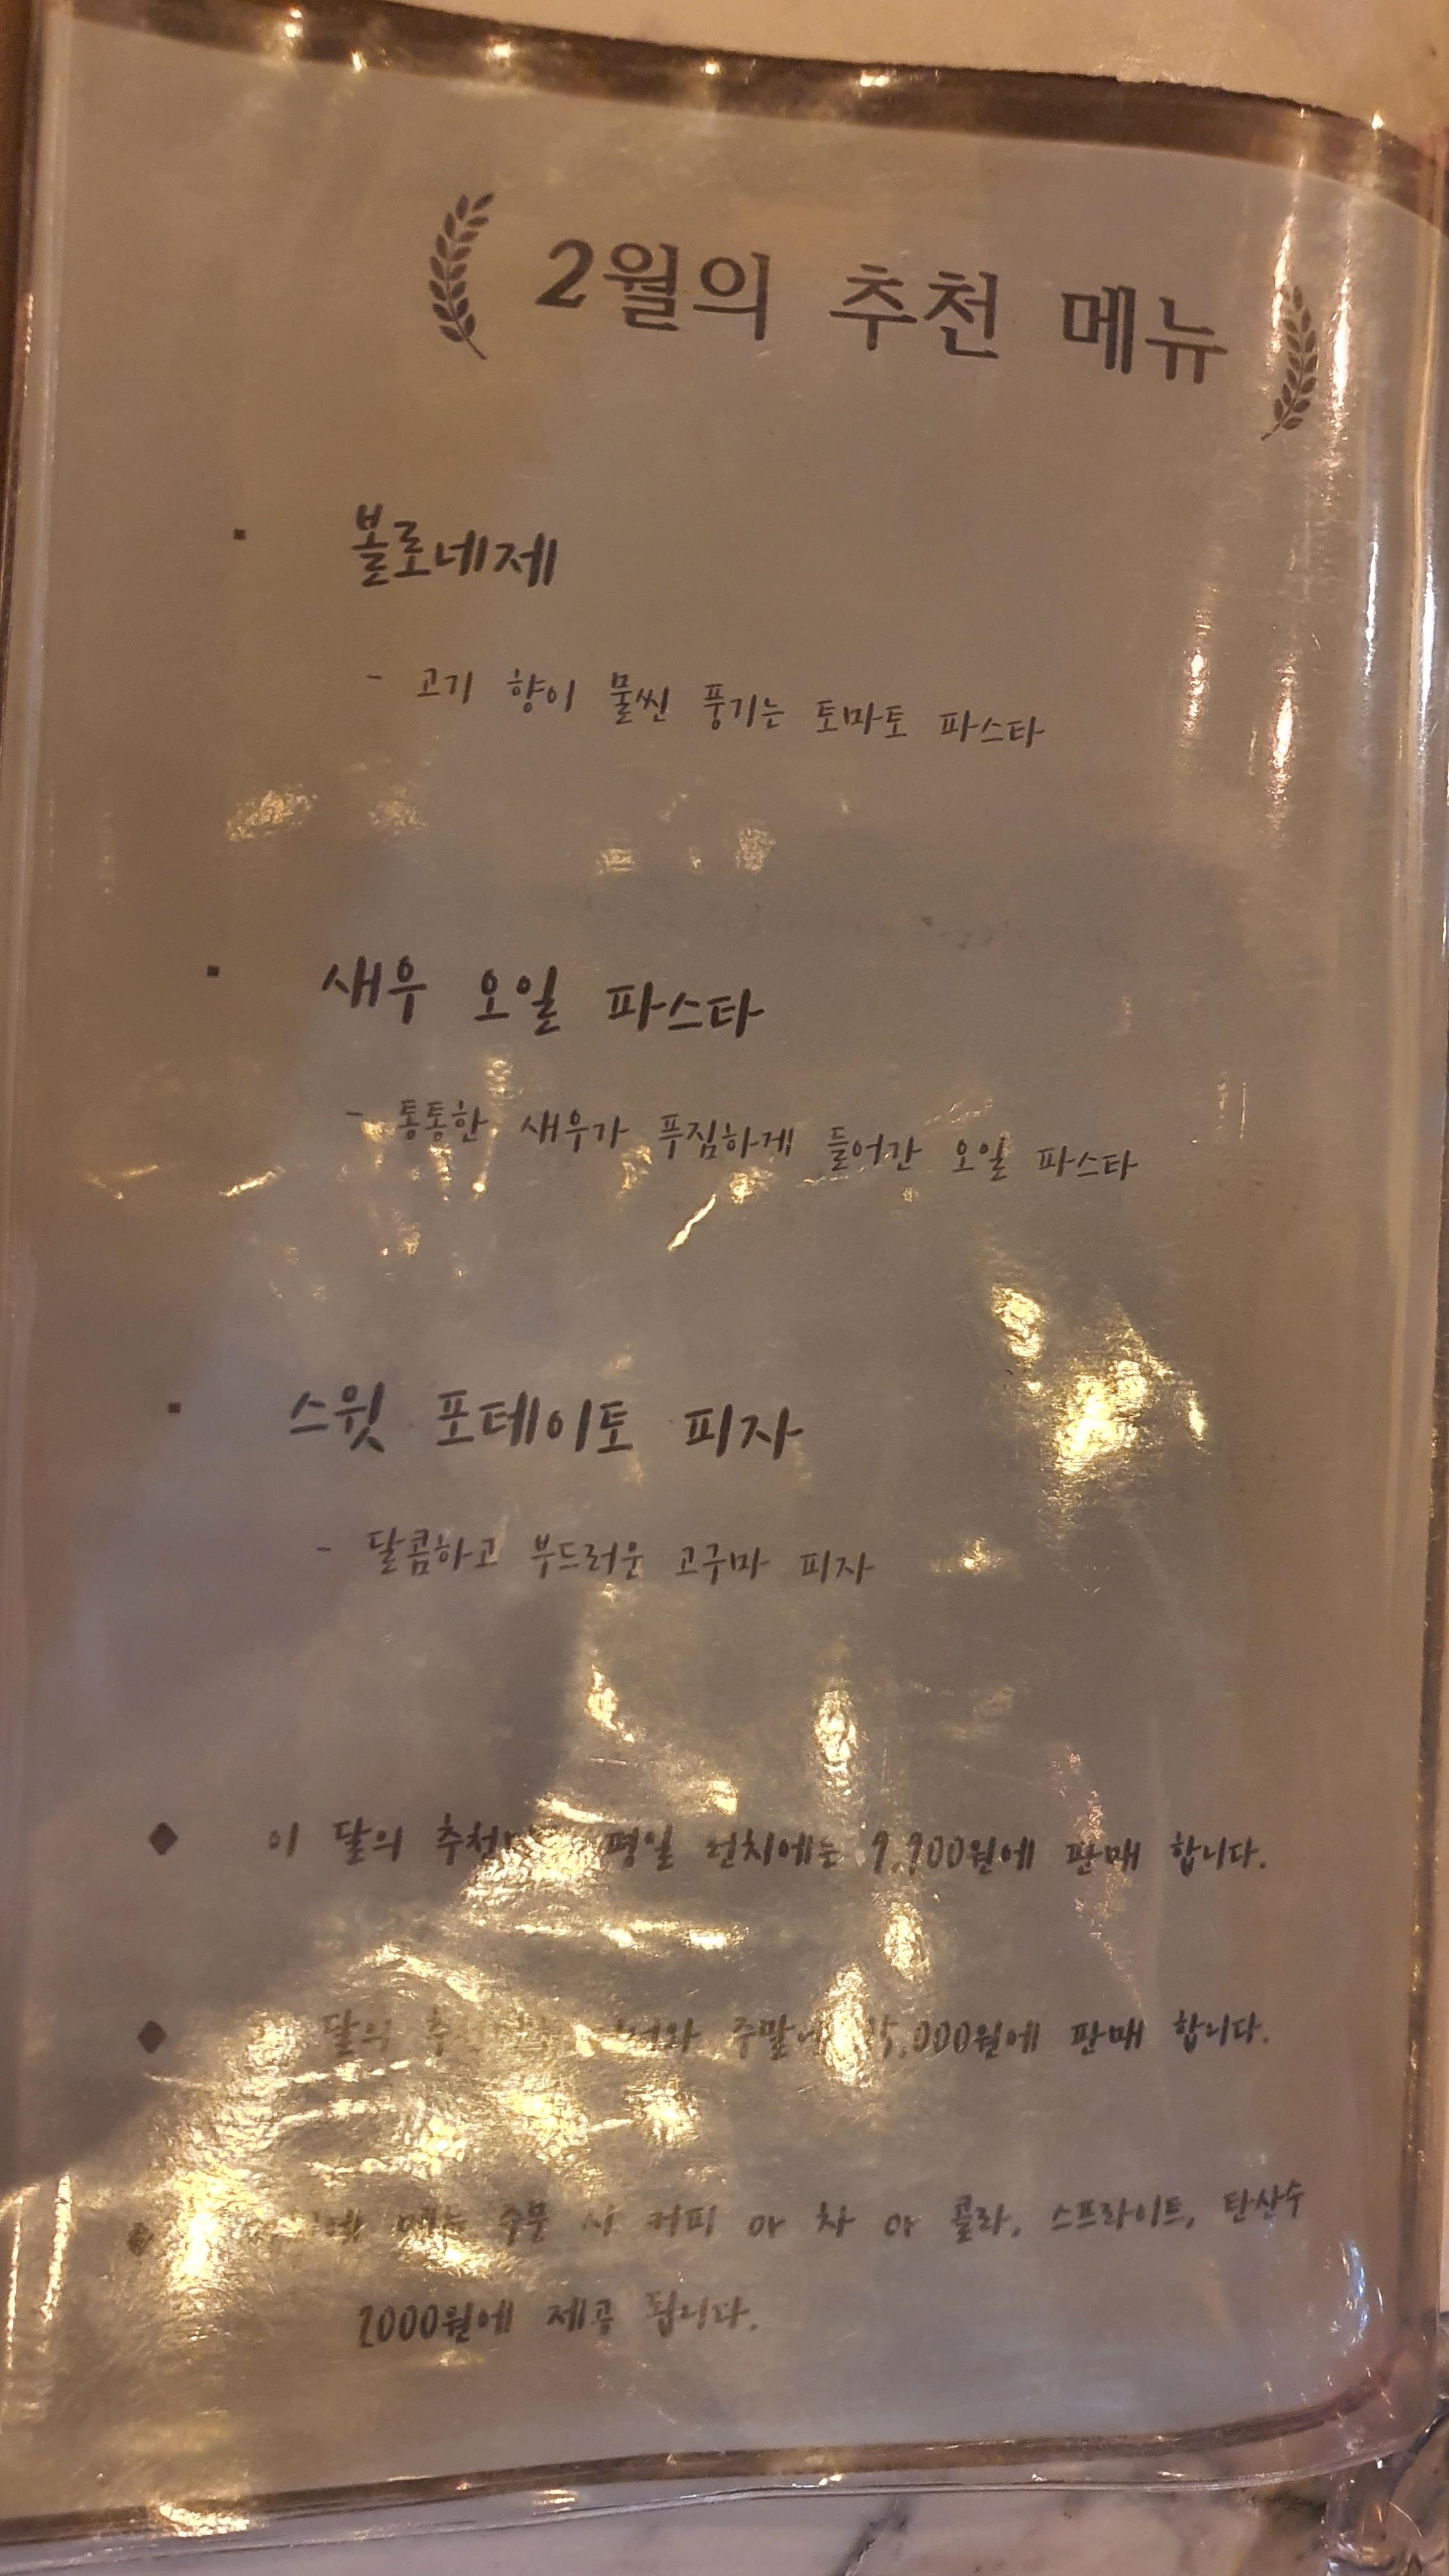 2월의 추천 메뉴
볼로네제
- 고기 향이 물씬 풍기는 토마토 파스타
새우 오일 파스타
- 통통한 새우가 푸짐하게 들어간 오일 파스타
스윗 포테이토 피자
- 달콤하고 부드러운 고구마 피자
이 달의 평일 런치에는 9,900원에 판매 합니다.
달의 판매 합니다.
주문 시 커피 or 차 or 콜라, 스프라이트, 탄산수
2000원에 제공 됩니다.